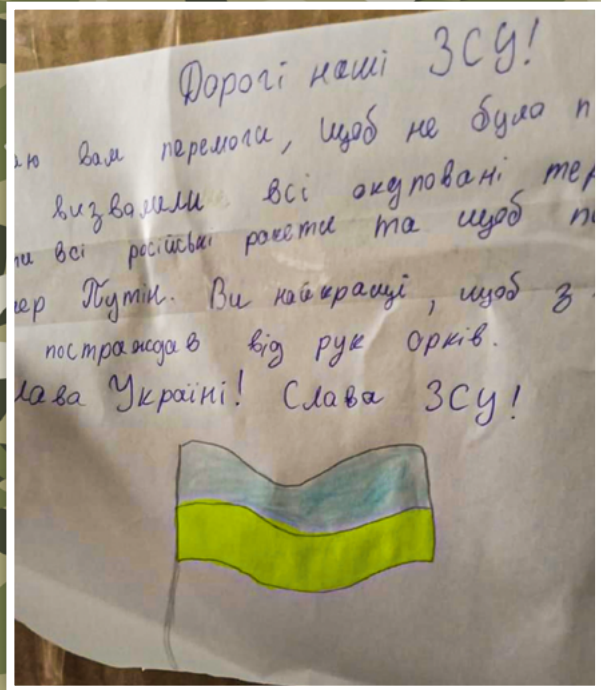 Дорогі наші ЗСУ!
вам перемоги, щоб не було
визвалили всі окуповані
всі російські ракети та щоб
Путін. Ви найкращі, щоб з
постраждав від рук орків.
Слава Україні! Слава ЗСУ!